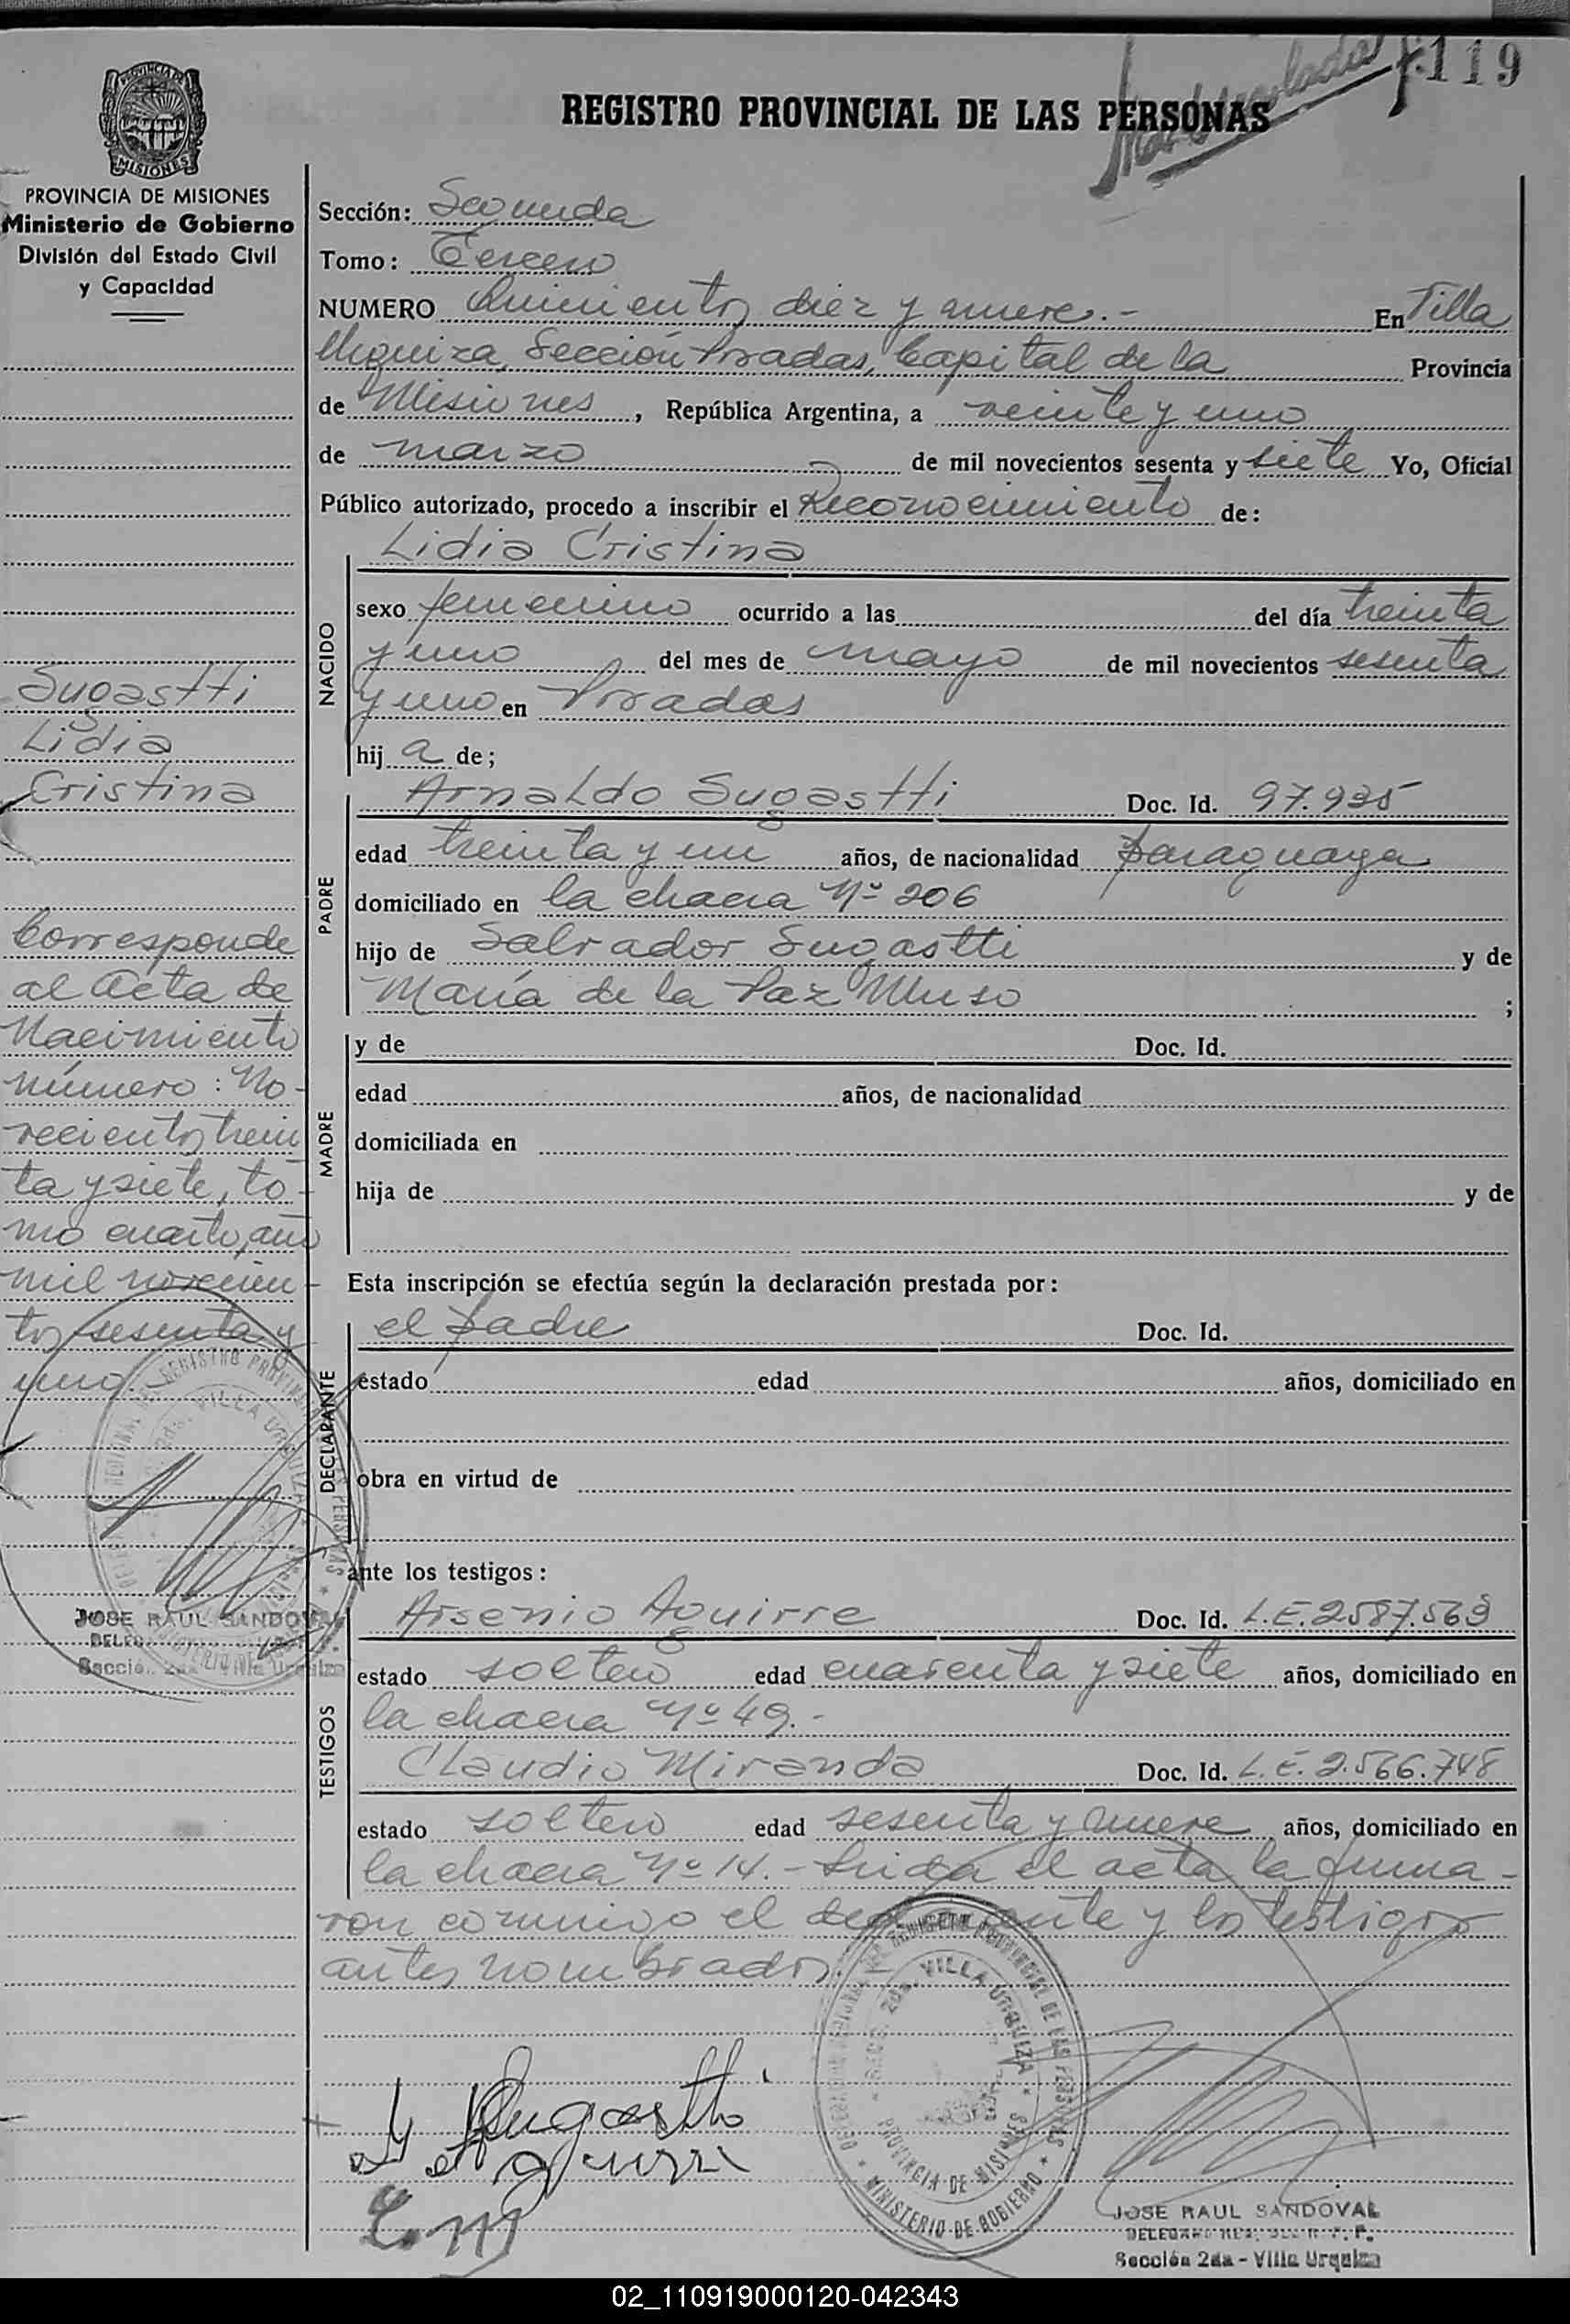 119
REGISTRO PROVINCIAL DE LAS PERSONAS
PROVINCIA DE
MISIONES
PROVINCIA DE MISIONES
Ministerio de Gobierno
División del Estado Civil
y Capacidad
Sugastti
Lidia
Cristina
Corresponde
al Acta de
Nacimiento
número: No-
vecientos trein
ta y siete, to-
mo cuarto, año
mil novecien-
tos sesenta y
uno.-
JOSE RAUL SANDOVAL
Sección 2da - Villa Urquiza
Sección: Segunda
Tomo: Tercero
NUMERO Quinientos diez y nueve.- En Villa
Urquiza, Sección Posadas, Capital de la Provincia
de Misiones, República Argentina, a veinte y uno
de marzo de mil novecientos sesenta y siete Yo, Oficial
Público autorizado, procedo a inscribir el Reconocimiento de:
NACIDO
Lidia Cristina
sexo femenino ocurrido a las del día treinta
y uno del mes de mayo de mil novecientos sesenta
y uno en Posadas
hija de;
PADRE
Arnaldo Sugastti Doc. Id. 97.935
edad treinta y un años, de nacionalidad paraguaya
domiciliado en la chacra Nº 206
hijo de Salvador Sugastti y de
María de la Paz ;
MADRE
y de Doc. Id.
edad años, de nacionalidad
domiciliada en
hija de y de
Esta inscripción se efectúa según la declaración prestada por:
DECLARANTE
el padre Doc. Id.
estado edad años, domiciliado en
obra en virtud de
ante los testigos:
TESTIGOS
Arsenio Aguirre Doc. Id. L.E. 2587.569
estado soltero edad cuarenta y siete años, domiciliado en
la chacra Nº 49.-
Claudio Miranda Doc. Id. L.E. 2.566.748
estado soltero edad sesenta y nueve años, domiciliado en
la chacra Nº 14.- Leida el acta la firma-
ron conmigo el declarante y los testigos
antes nombrados.-
Sugastti
C. M
SECC. 2da. VILLA URQUIZA
PROVINCIA DE MISIONES
MINISTERIO DE GOBIERNO
JOSE RAUL SANDOVAL
Sección 2da - Villa Urquiza
02_110919000120-042343